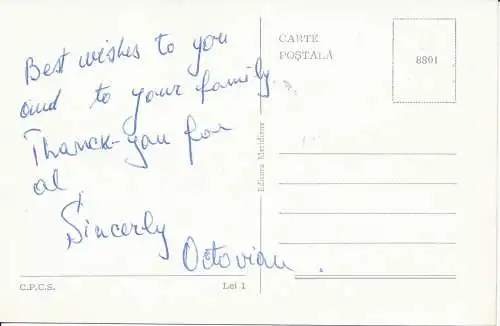 Best wishes to you
and to your family.
Thanck-you for
al
Sincerly
Octovian.
C.P.C.S.
Lei 1
Editura Meridiane
CARTE
POȘTALĂ
8801